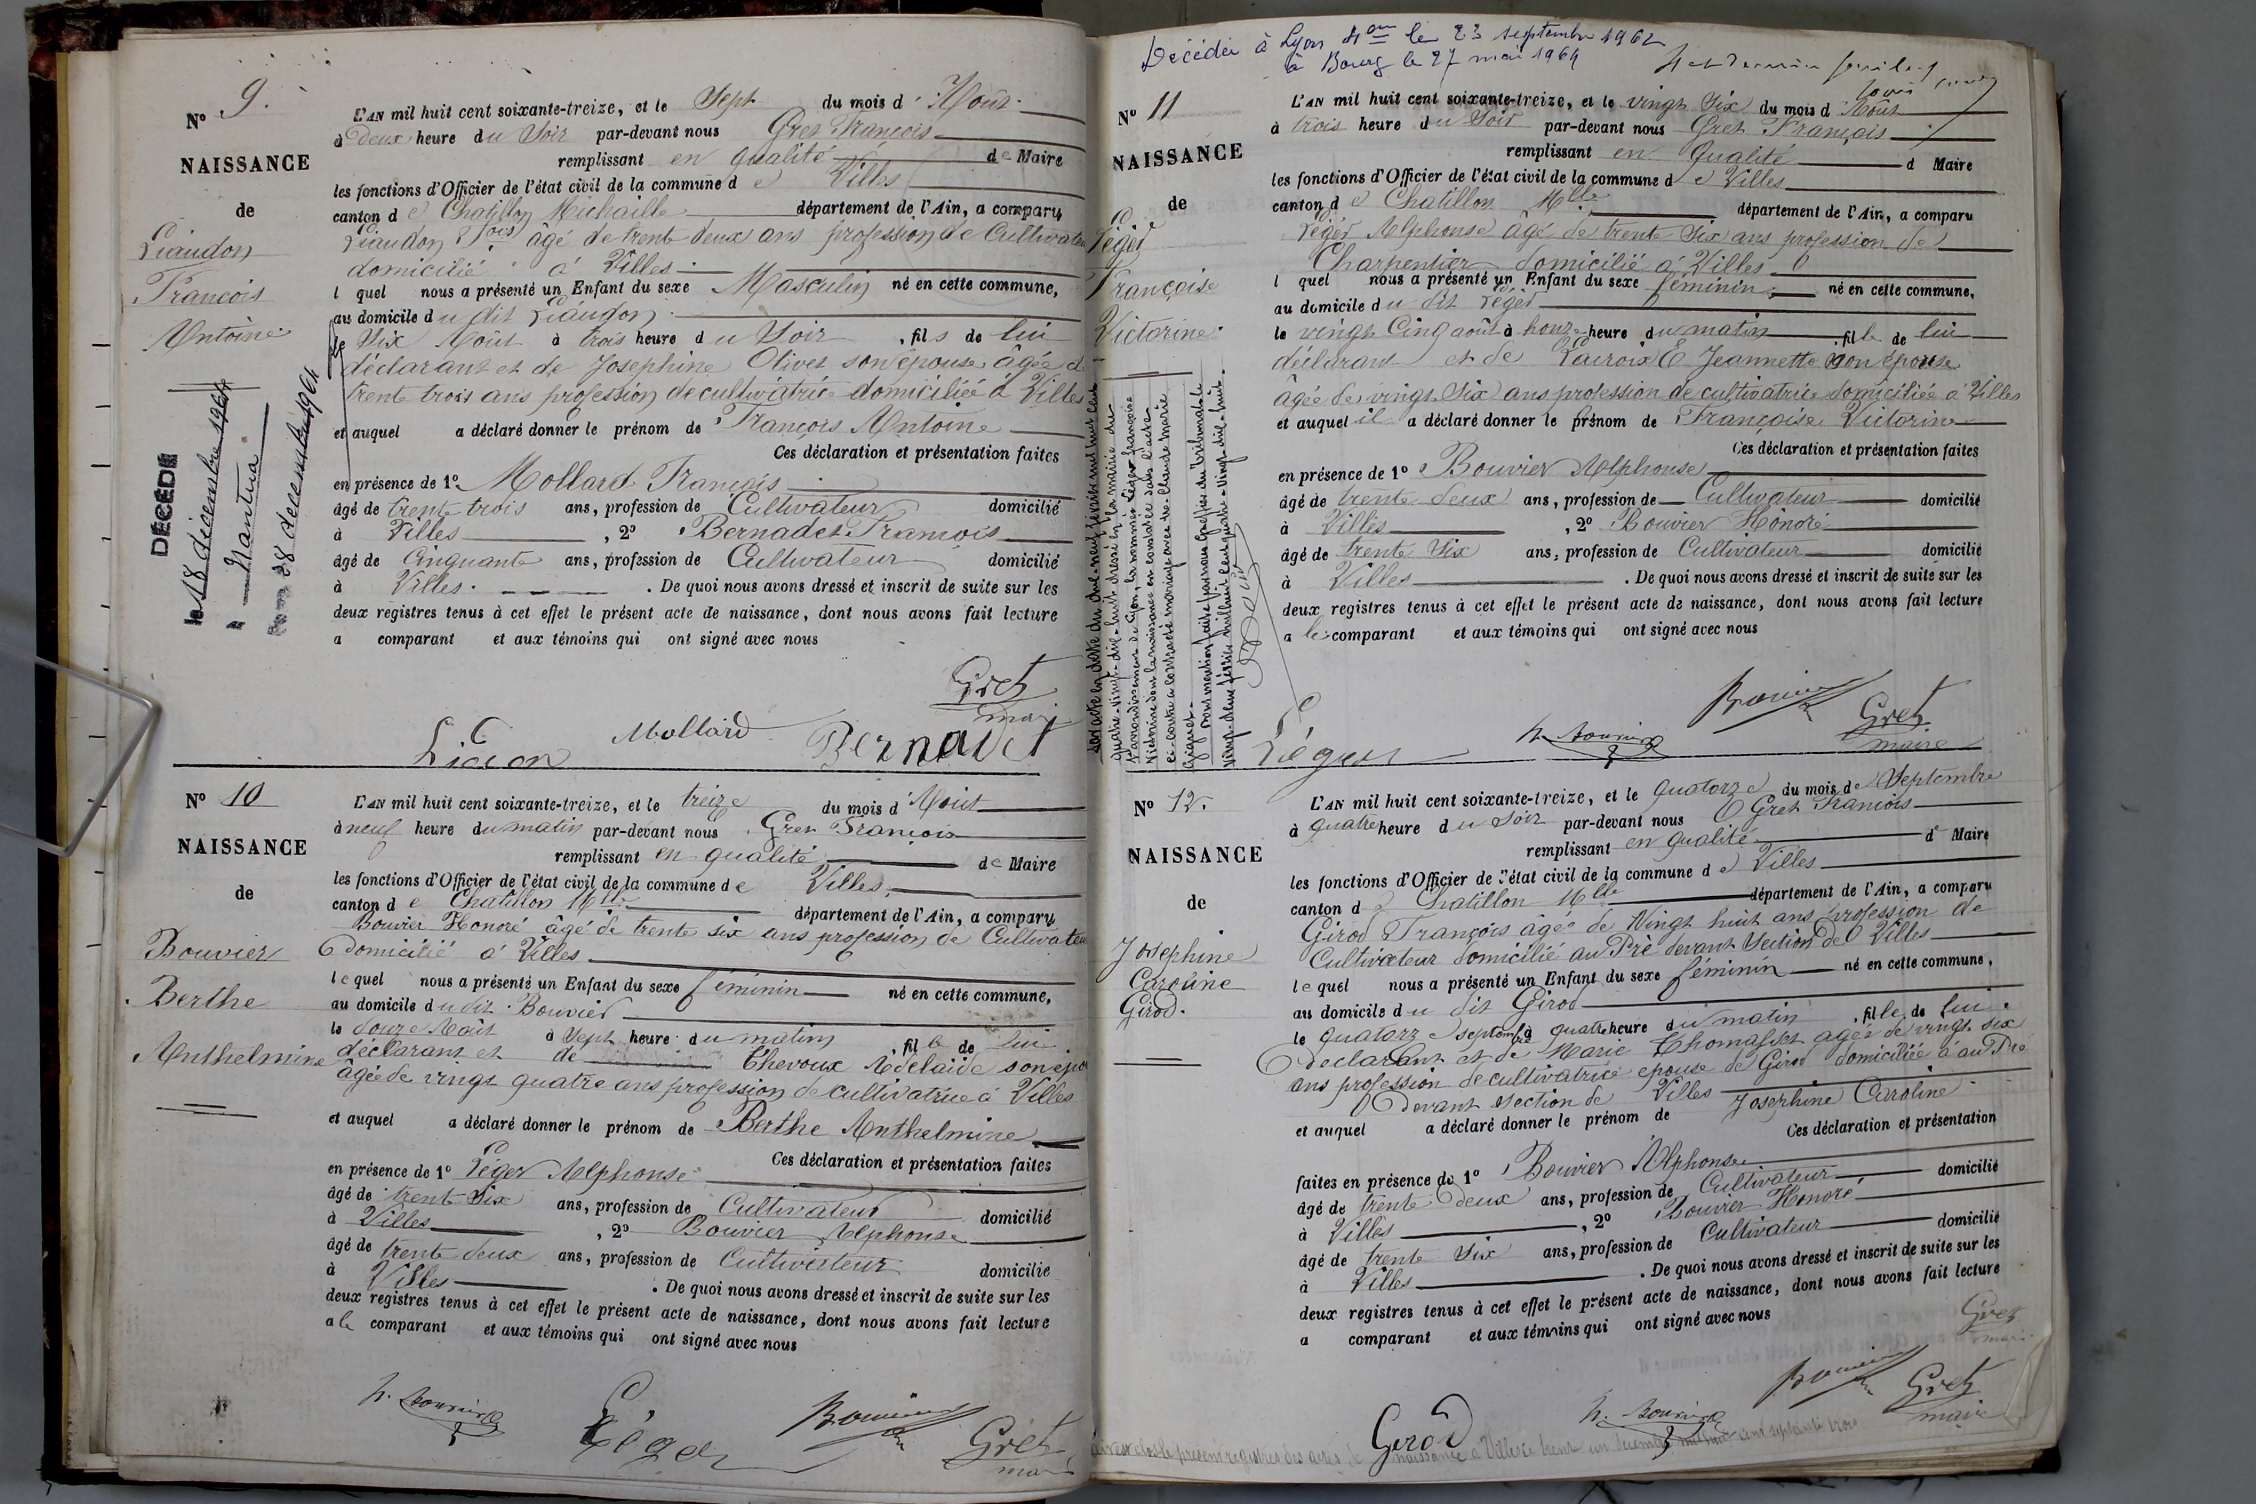 N° 9.
NAISSANCE
de
Liaudon
François
Antoine
DÉCÉDÉ
le 18 décembre 1964
à Nantua
28 décembre 1964
L'AN mil huit cent soixante-treize, et le Sept du mois d'Août
à deux heure du Soir par-devant nous Gret François
remplissant en qualité de Maire
les fonctions d'Officier de l'état civil de la commune de Villes
canton de Chatillon Michaille département de l'Ain, a comparu
Liaudon âgé de trente deux ans profession de Cultivateur
domicilié à Villes
l quel nous a présenté un Enfant du sexe Masculin né en cette commune,
au domicile du dit Liaudon
le Six Août à trois heure du Soir, fils de lui
déclarant et de Josephine Olivet son épouse âgée de
trente trois ans profession de cultivatrice domiciliée à Villes
et auquel a déclaré donner le prénom de François Antoine
Ces déclaration et présentation faites
en présence de 1° Mollard François
âgé de trente trois ans, profession de Cultivateur domicilié
à Villes, 2° Bernadet François
âgé de Cinquante ans, profession de Cultivateur domicilié
à Villes. De quoi nous avons dressé et inscrit de suite sur les
deux registres tenus à cet effet le présent acte de naissance, dont nous avons fait lecture
a comparant et aux témoins qui ont signé avec nous
Gret
maire
Mollard
Bernadet
N° 10
NAISSANCE
de
Bouvier
Berthe
Anthelmine
L'AN mil huit cent soixante-treize, et le treize du mois d'Août
à neuf heure du matin par-devant nous Gret François
remplissant en qualité de Maire
les fonctions d'Officier de l'état civil de la commune de Villes
canton de Chatillon Mlle département de l'Ain, a comparu
Bouvier Honoré âgé de trente six ans profession de Cultivateur
domicilié à Villes
lequel nous a présenté un Enfant du sexe féminin né en cette commune,
au domicile du dit Bouvier
le douze Août à Sept heure du matin, fille de lui
déclarant et de Thevoux Adelaïde son épouse
âgée de vingt quatre ans profession de cultivatrice à Villes
et auquel a déclaré donner le prénom de Berthe Anthelmine
Ces déclaration et présentation faites
en présence de 1° Léger Alphonse
âgé de trente Six ans, profession de Cultivateur domicilié
à Villes, 2° Bouvier Alphonse
âgé de trente deux ans, profession de Cultivateur domicilié
à Villes. De quoi nous avons dressé et inscrit de suite sur les
deux registres tenus à cet effet le présent acte de naissance, dont nous avons fait lecture
a le comparant et aux témoins qui ont signé avec nous
h. Bouvier
Léger
Bouvier
Gret
maire
Décédée à Lyon 4em le 23 septembre 1962
à Bourg le 27 mai 1964
N° 11
NAISSANCE
de
Léger
Françoise
Victorine
L'AN mil huit cent soixante-treize, et le vingt Six du mois d'Août
à trois heure du Soir par-devant nous Gret François
remplissant en Qualité d Maire
les fonctions d'Officier de l'état civil de la commune de Villes
canton de Chatillon Mlle département de l'Ain, a comparu
Léger Alphonse âgé de trente Six ans profession de
Charpentier domicilié à Villes
l quel nous a présenté un Enfant du sexe féminin né en cette commune,
au domicile du dit Léger
le vingt Cinq août à honze heure du matin, fille de lui
déclarant et de Lacroix Jeannette son épouse
âgée de vingt Six ans profession de cultivatrice domiciliée à Villes
et auquel il a déclaré donner le prénom de Françoise Victorine
Ces déclaration et présentation faites
en présence de 1° Bouvier Alphonse
âgé de trente deux ans, profession de Cultivateur domicilié
à Villes, 2° Bouvier Honoré
âgé de trente Six ans, profession de Cultivateur domicilié
à Villes. De quoi nous avons dressé et inscrit de suite sur les
deux registres tenus à cet effet le présent acte de naissance, dont nous avons fait lecture
a le comparant et aux témoins qui ont signé avec nous
Par acte en date du dix-neuf février mil huit cent
quatre-vingt-dix-huit dressé en la mairie du
arrondissement de Lyon, la nommée Léger Françoise
Victorine dont la naissance est constatée dans l'acte
ci-contre a contracté mariage avec Claude Marie
Giguet
pour mention faite par nous Greffier du Tribunal le
vingt-deux février mil huit cent quatre-vingt-dix-huit
Léger
h. Bouvier
Bouvier
Gret
maire
N° 12.
NAISSANCE
de
Josephine
Caroline
Girod.
L'AN mil huit cent soixante-treize, et le quatorze du mois de Septembre
à quatre heure du Soir par-devant nous Gret François
remplissant en qualité de Maire
les fonctions d'Officier de l'état civil de la commune de Villes
canton de Chatillon Mlle département de l'Ain, a comparu
Girod François âgé de Vingt huit ans profession de
Cultivateur domicilié au Pré devant Section de Villes
lequel nous a présenté un Enfant du sexe féminin né en cette commune,
au domicile du dit Girod
le quatorze septembre à quatre heure du matin, fille de lui
Declarant et de Marie Thomasset agée de vingt six
ans profession de cultivatrice epouse de Girod domiciliée à au Pré
devant section de Villes
et auquel a déclaré donner le prénom de Josephine Caroline
Ces déclaration et présentation
faites en présence de 1° Bouvier Alphonse
âgé de trente deux ans, profession de Cultivateur domicilié
à Villes, 2° Bouvier Honoré
âgé de trente Six ans, profession de Cultivateur domicilié
à Villes. De quoi nous avons dressé et inscrit de suite sur les
deux registres tenus à cet effet le présent acte de naissance, dont nous avons fait lecture
a comparant et aux témoins qui ont signé avec nous
Gret
maire
Girod
h. Bouvier
Bouvier
Gret
maire
clos le présent registres des actes de naissance à Villes le trente un Décembre mil huit cent septante trois